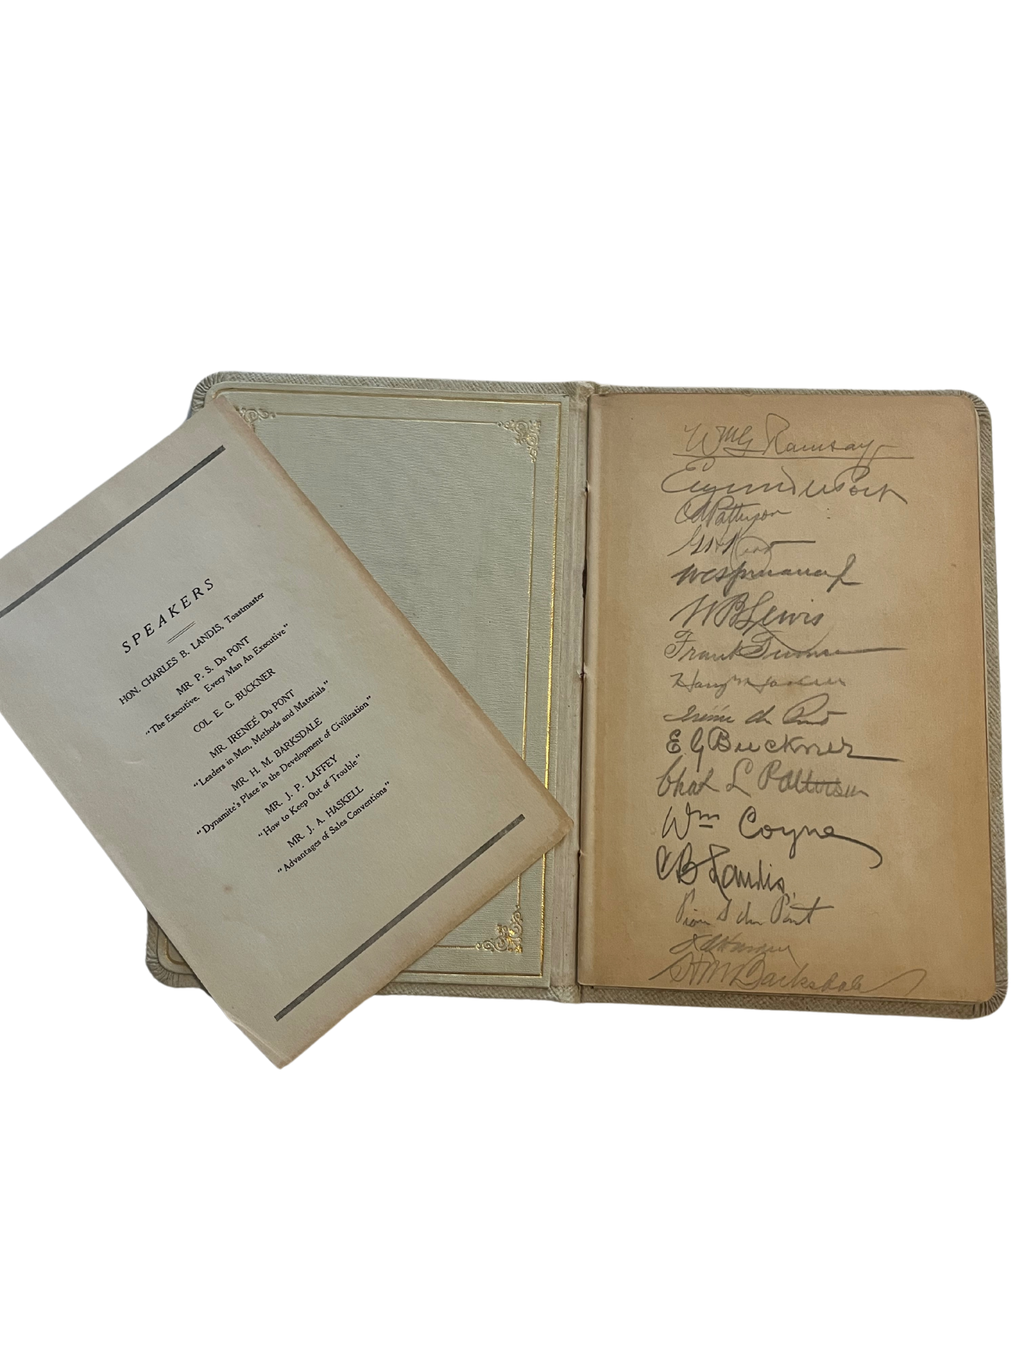 SPEAKERS
HON. CHARLES B. LANDIS, Toastmaster
MR. P. S. Du PONT
"The Executive, Every Man An Executive"
COL. E. G. BUCKNER
MR. IRENEÉ Du PONT
"Leaders in Men, Methods and Materials"
MR. H. M. BARKSDALE
"Dynamite's Place in the Development of Civilization"
MR. J. P. LAFFEY
"How to Keep Out of Trouble"
MR. J. A. HASKELL
"Advantages of Sales Conventions"
Wm G Ramsay
Eugene du Pont
Patterson
W B Lewis
Frank
Harry
Irénée du Pont
E G Buckner
Chas L Patterson
Wm Coyne
C B Landis
Pierre S du Pont
H M Barksdale